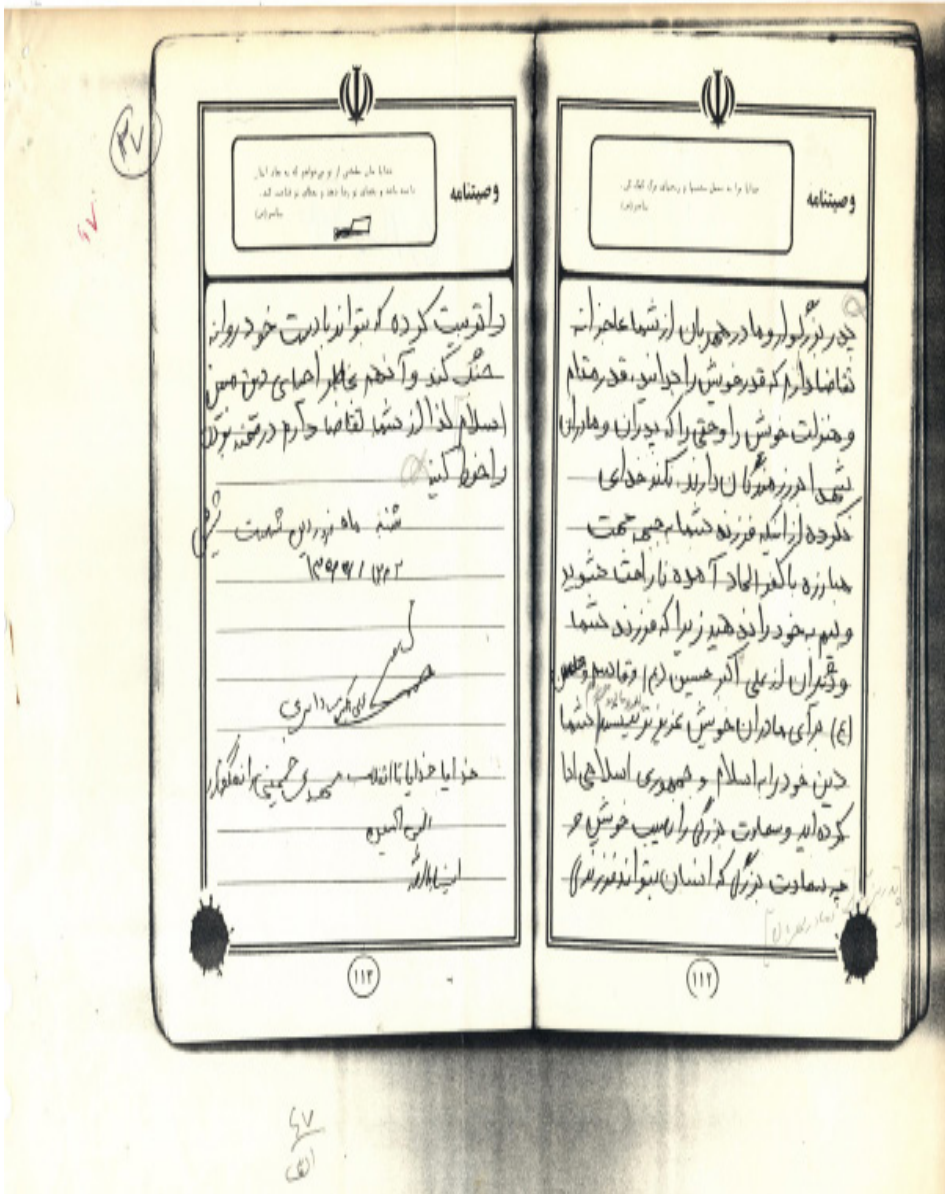 وصیتنامه
خدایا مرا به تحمل سختیها و رنجهای مرگ کمک کن.
پیامبر(ص)
پدر بزرگوار و مادر مهربان از شما عاجزانه
تقاضا دارم که قدر خویش را بدانید، قدر مقام
و منزلت خویش را و حقی را که پدران و مادران
شهدا و رزمندگان دارند. نکند خدای
نکرده از اینکه فرزند شما به جبهه جهت
مبارزه با کفر الحاد آمده ناراحت شوید
و بیم به خود راه ندهید زیرا که فرزند شما
و دیگران از علی اکبر حسین (ع) و قاسم
(ع) برای مادران خویش عزیزتر نیستند شما
دین خود را به اسلام و جمهوری اسلامی ادا
کرده اید و سعادت بزرگی را نصیب خویش و
چه سعادت بزرگی که انسان بتواند فرزندی
۱۱۲
وصیتنامه
پیامبر(ص)
را تربیت کرده که بتواند با دست خود روانه
جنگ کند و آنهم بخاطر احیای دین مبین
اسلام لذا از شما تقاضا دارم
را حفظ کنید
شنبه ماه شصت
خدایا خدایا تا انقلاب مهدی خمینی را نگهدار
الهی آمین
انشاءالله
۱۱۳
۴۷
۴۷
الف